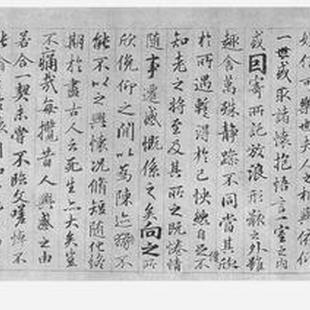 娛信可樂也夫人之相與俯仰
一世或取諸懷抱悟言一室之內
或因寄所託放浪形骸之外雖
趣舍萬殊靜躁不同當其欣
於所遇暫得於己怏然自足不
知老之將至及其所之既惓情
隨事遷感慨係之矣向之所
欣俛仰之閒以為陳迹猶不
能不以之興懷況脩短隨化終
期於盡古人云死生亦大矣豈
不痛哉每攬昔人興感之由
若合一契未嘗不臨文嗟悼不